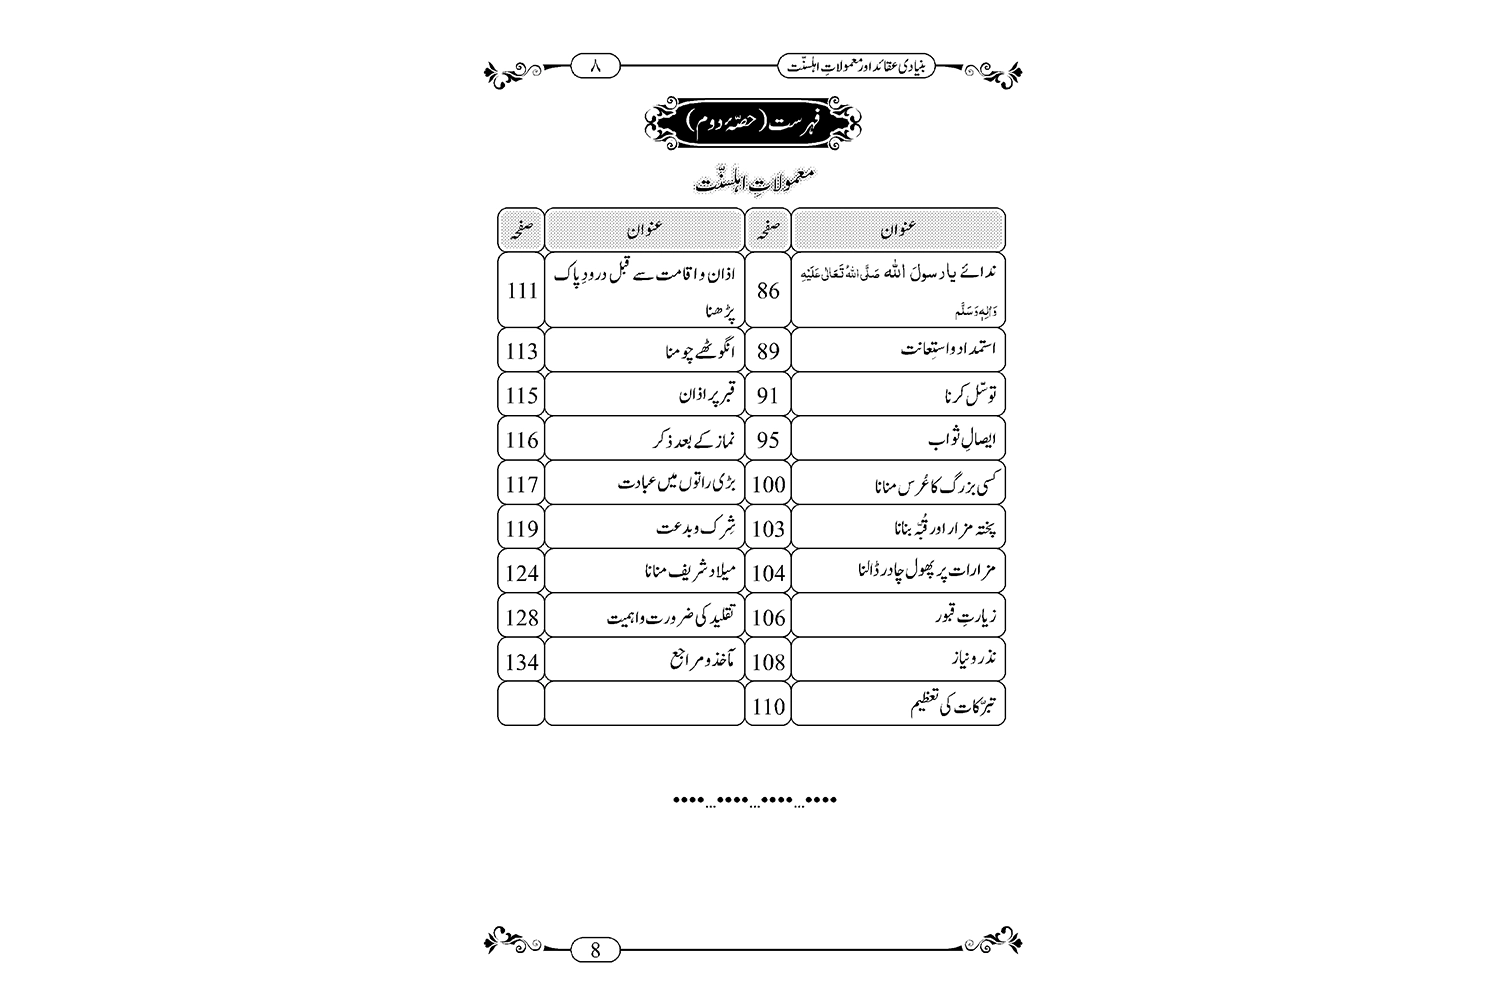 بنیادی عقائد اور معمولاتِ اہلسنّت ۸
فہرست (حصّۂ دوم)
معمولاتِ اہلسنّت
عنوان صفحہ عنوان صفحہ
ندائے یارسولَ اللہ صَلَّی اللہُ تَعَالٰی عَلَیْہِ وَاٰلِہٖ وَسَلَّم 86 اذان و اقامت سے قبل درودِ پاک پڑھنا 111
استمداد واستِعانت 89 انگوٹھے چومنا 113
توسّل کرنا 91 قبر پر اذان 115
ایصالِ ثواب 95 نماز کے بعد ذکر 116
کسی بزرگ کا عُرس منانا 100 بڑی راتوں میں عبادت 117
پختہ مزار اور قُبّہ بنانا 103 شِرک و بدعت 119
مزارات پر پھول چادر ڈالنا 104 میلاد شریف منانا 124
زیارتِ قبور 106 تقلید کی ضرورت واہمیت 128
نذر و نیاز 108 مآخذ و مراجع 134
تبرّکات کی تعظیم 110
8